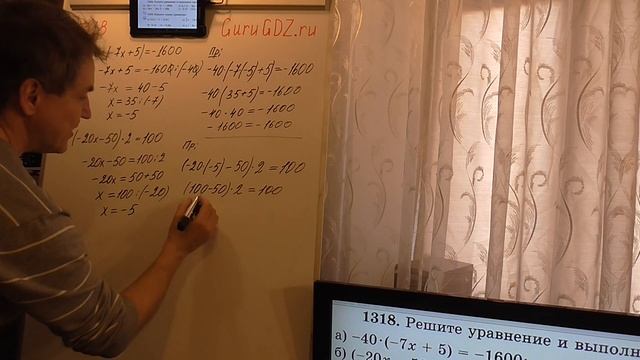 8
GuruGDZ.ru
-7x+5)=-1600
-7x+5=-1600:(-40)
-7x = 40-5
x=35:(-7)
x=-5
Пр:
-40·(-7(-5)+5)=-1600
-40·(35+5)=-1600
-40·40=-1600
-1600=-1600
(-20x-50)·2=100
-20x-50=100:2
-20x=50+50
x=100:(-20)
x=-5
Пр:
(-20(-5)-50)·2=100
(100-50)·2=100
1318. Решите уравнение и выполн
а) -40·(-7x + 5) = -1600;
б) (-20x